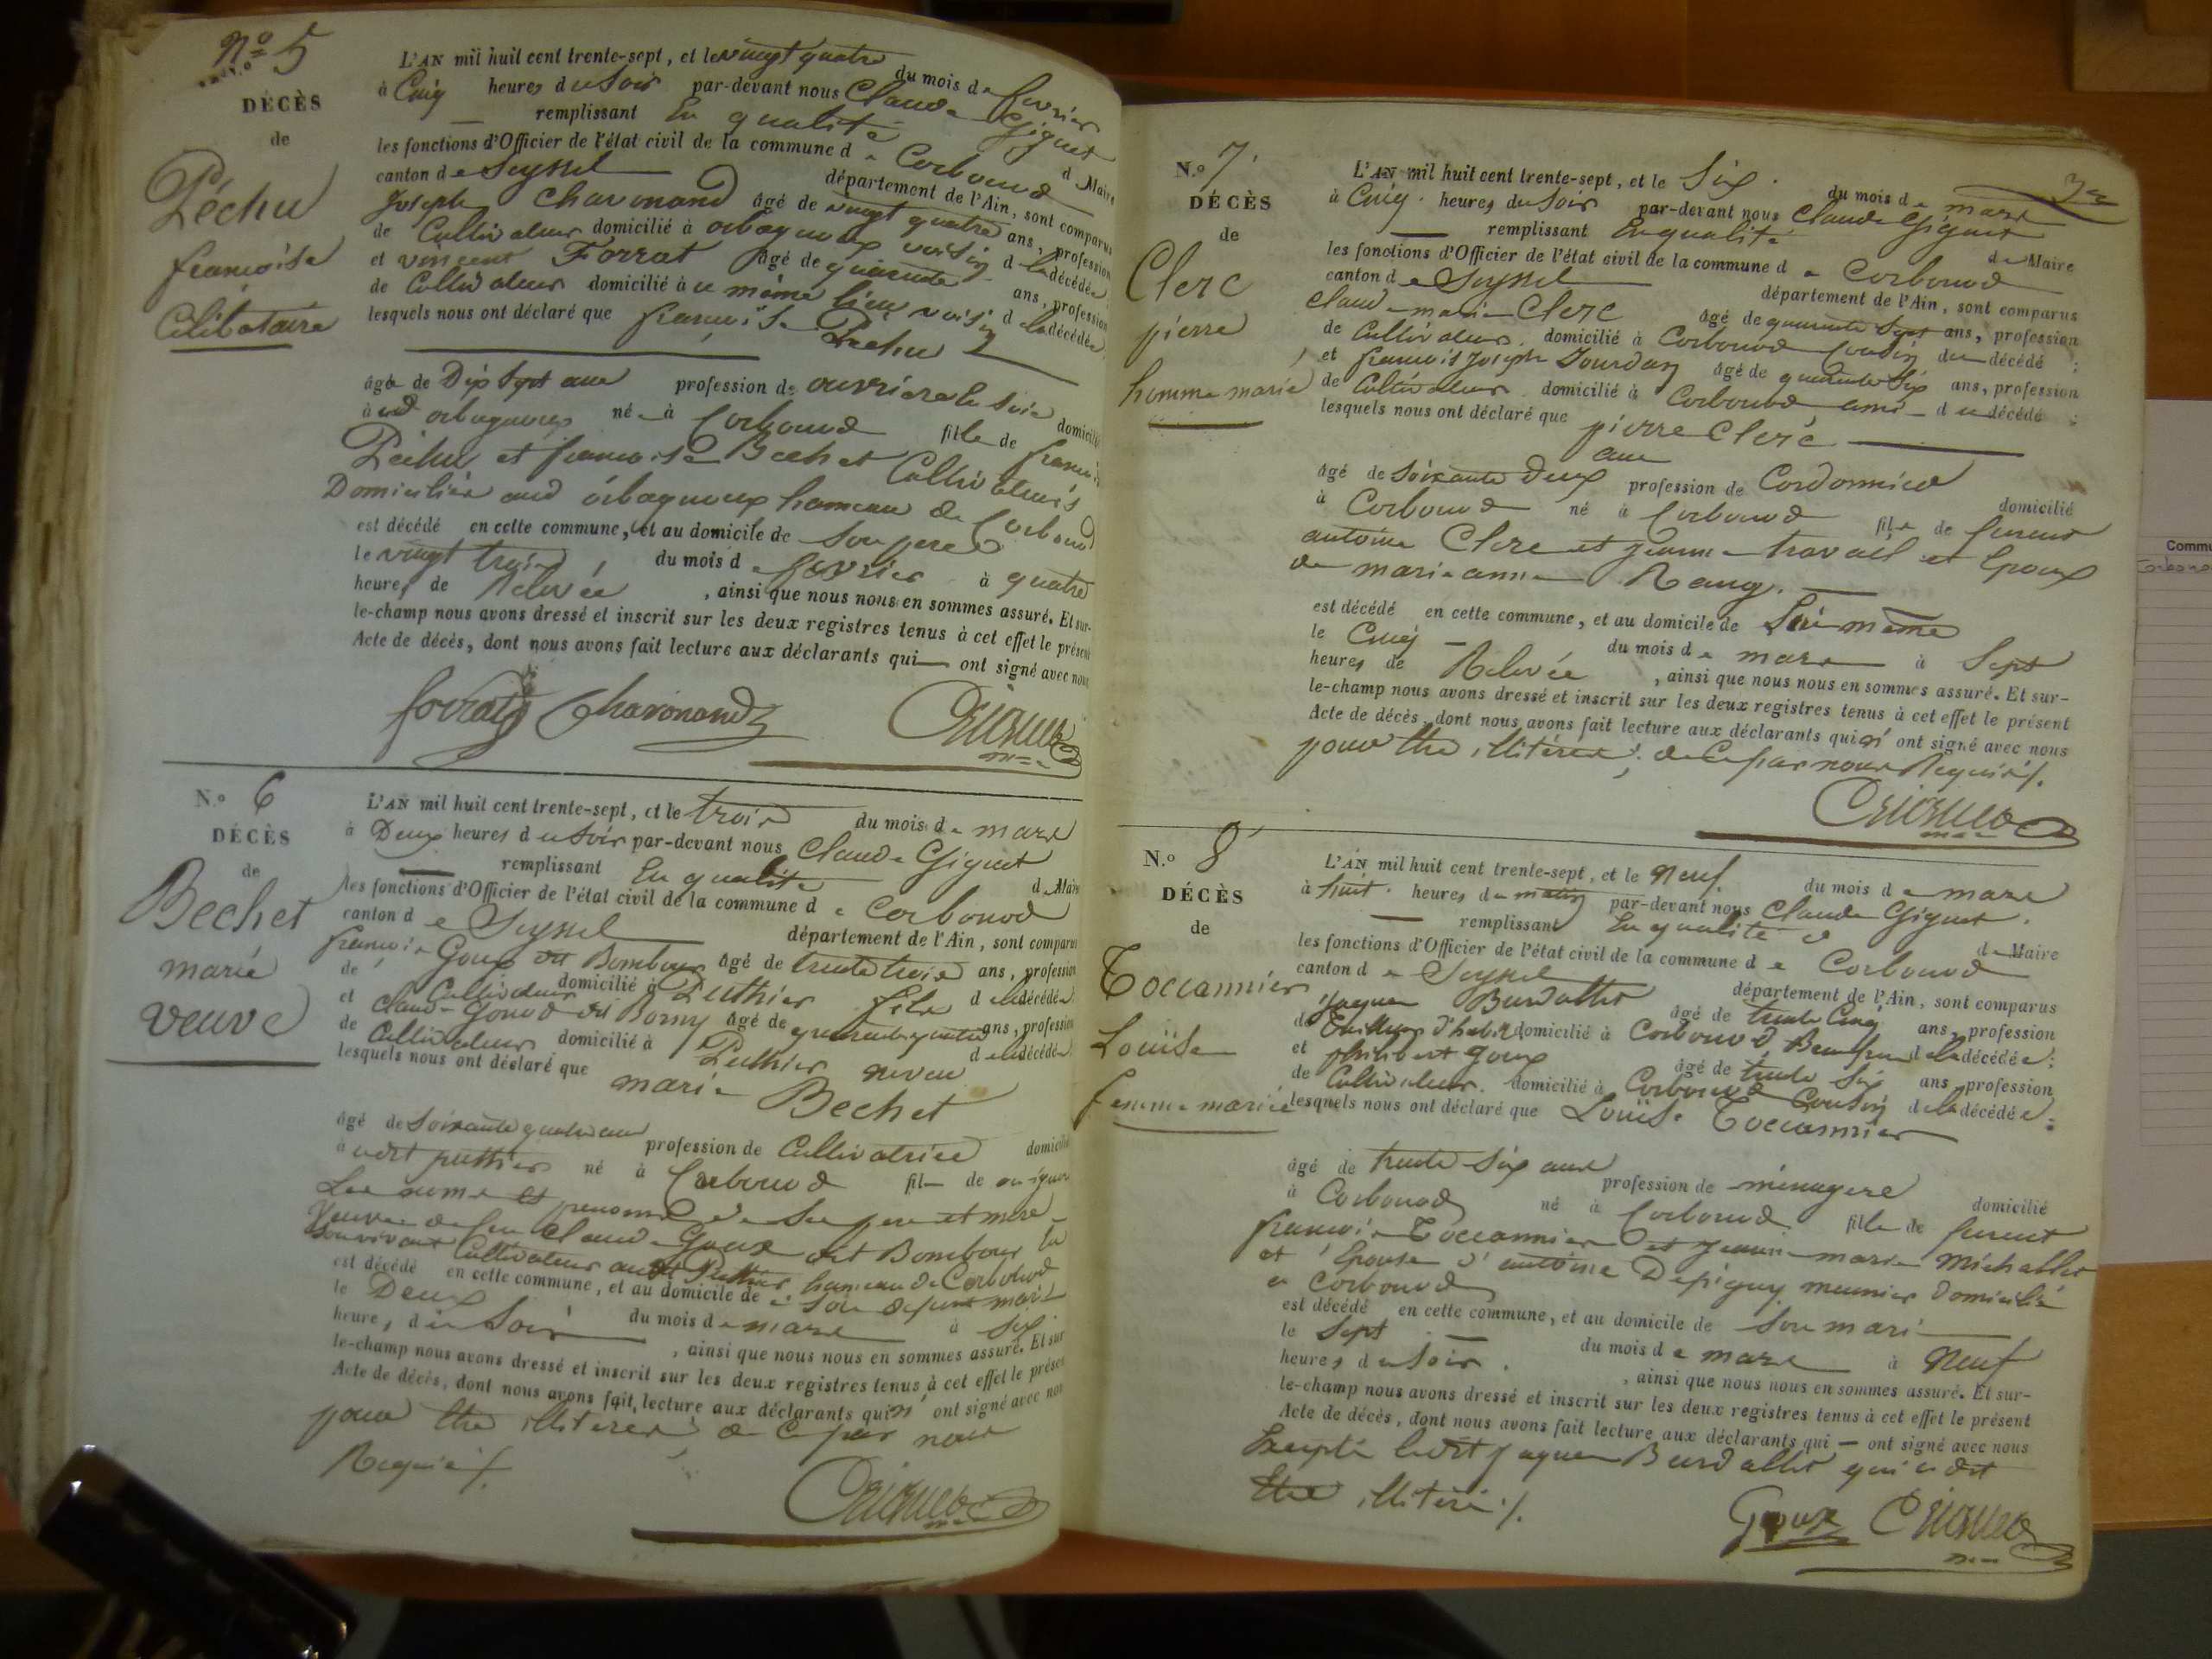 N.o 5
DÉCÈS
de
Péchu
françoise
Célibataire
L'AN mil huit cent trente-sept, et le vingt quatre du mois de fevrier
à Cinq heures du Soir par-devant nous Claude Giguet
remplissant En qualité de Maire
les fonctions d'Officier de l'état civil de la commune de Corbonod
canton de Seyssel département de l'Ain, sont comparus
Joseph Chavonand âgé de vingt quatre ans, profession
de Cultivateur domicilié à orbagnoux voisin de la décédée
et vincent Forrat âgé de quarante ans, profession
de Cultivateur domicilié à ce même lieu voisin de la décédée
lesquels nous ont déclaré que françoise Péchu
âgé de Dix Sept ans profession de ouvrière la Soie domicilié
à orbagnoux née à Corbonod fille de françois
Péchu et françoise Bechet Cultivateurs
Domiciliés aud orbagnoux hameau de Corbonod
est décédé en cette commune, et au domicile de Son pere
le vingt trois du mois de fevrier à quatre
heures de Relevée, ainsi que nous nous en sommes assuré. Et sur-
le-champ nous avons dressé et inscrit sur les deux registres tenus à cet effet le présent
Acte de décès, dont nous avons fait lecture aux déclarants qui ont signé avec nous
forrat Chavonand Giguet
N.o 6
DÉCÈS
de
Bechet
marie
veuve
L'AN mil huit cent trente-sept, et le trois du mois de mars
à Deux heures du Soir par-devant nous Claude Giguet
remplissant En qualité de Maire
les fonctions d'Officier de l'état civil de la commune de Corbonod
canton de Seyssel département de l'Ain, sont comparus
françois Goux dit Bombour âgé de trente trois ans, profession
de Cultivateur domicilié à Puthier fils de la décédée
et Claude Gonod dit Borny âgé de quarante quatre ans, profession
de Cultivateur domicilié à Puthier neveu de la décédée
lesquels nous ont déclaré que marie Bechet
âgé de Soixante quatre ans profession de Cultivatrice domicilié
à udit puthier né à Corbonod fil de on ignore
Les noms et prenoms de Ses pere et mere
Veuve de feu Claude Goux dit Bombour En
Son vivant Cultivateur audit Puthier hameau de Corbonod
est décédé en cette commune, et au domicile de Son defunt mari
le Deux du mois de mars à Six
heures du Soir, ainsi que nous nous en sommes assuré. Et sur
le-champ nous avons dressé et inscrit sur les deux registres tenus à cet effet le présent
Acte de décès, dont nous avons fait lecture aux déclarants qui n' ont signé avec nous
pour Etre illiteres de Ce par nous
Requis /.
Giguet
N.o 7
DÉCÈS
de
Clerc
pierre
homme marié
L'AN mil huit cent trente-sept, et le Six du mois de mars
à Cinq heures du Soir par-devant nous Claude Giguet
remplissant En qualité de Maire
les fonctions d'Officier de l'état civil de la commune de Corbonod
canton de Seyssel département de l'Ain, sont comparus
Claude marie Clerc âgé de quarante Sept ans, profession
de Cultivateur domicilié à Corbonod Cousin du décédé ;
et françois Joseph Jourdan âgé de quarante Six ans, profession
de Cultivateur domicilié à Corbonod ami du décédé ;
lesquels nous ont déclaré que pierre Clerc
âgé de Soixante Deux ans profession de Cordonnier domicilié
à Corbonod né à Corbonod fils de furent
antoine Clerc et Jeanne travail et Epoux
de marie anne Rang.
est décédé en cette commune, et au domicile de Lui même
le Cinq du mois de mars à Sept
heures de Relevée, ainsi que nous nous en sommes assuré. Et sur-
le-champ nous avons dressé et inscrit sur les deux registres tenus à cet effet le présent
Acte de décès, dont nous avons fait lecture aux déclarants qui n' ont signé avec nous
pour Etre illiteres, de Ce par nous Requis /.
Giguet
N.o 8
DÉCÈS
de
Toccannier
Louise
femme mariée
L'AN mil huit cent trente-sept, et le Neuf du mois de mars
à huit heures du matin par-devant nous Claude Giguet
remplissant En qualité de Maire
les fonctions d'Officier de l'état civil de la commune de Corbonod
canton de Seyssel département de l'Ain, sont comparus
Jaques Burdallet âgé de trente Cinq ans, profession
de Tailleur d'habit domicilié à Corbonod Beaufrere de la décédée ;
et philibert Goux âgé de trente Six ans, profession
de Cultivateur domicilié à Corbonod Cousin de la décédée ;
lesquels nous ont déclaré que Louise Toccannier
âgé de trente Six ans profession de ménagere domicilié
à Corbonod né à Corbonod fille de furent
françois Toccannier et Jeanne marie Michallet
et Epouse d'antoine Depigny meunier Domicilié
a Corbonod
est décédé en cette commune, et au domicile de Son mari
le Sept du mois de mars à Neuf
heures du Soir, ainsi que nous nous en sommes assuré. Et sur-
le-champ nous avons dressé et inscrit sur les deux registres tenus à cet effet le présent
Acte de décès, dont nous avons fait lecture aux déclarants qui ont signé avec nous
Excepté ledit Jaques Burdallet qui a dit
Etre illiteré /.
Goux Giguet